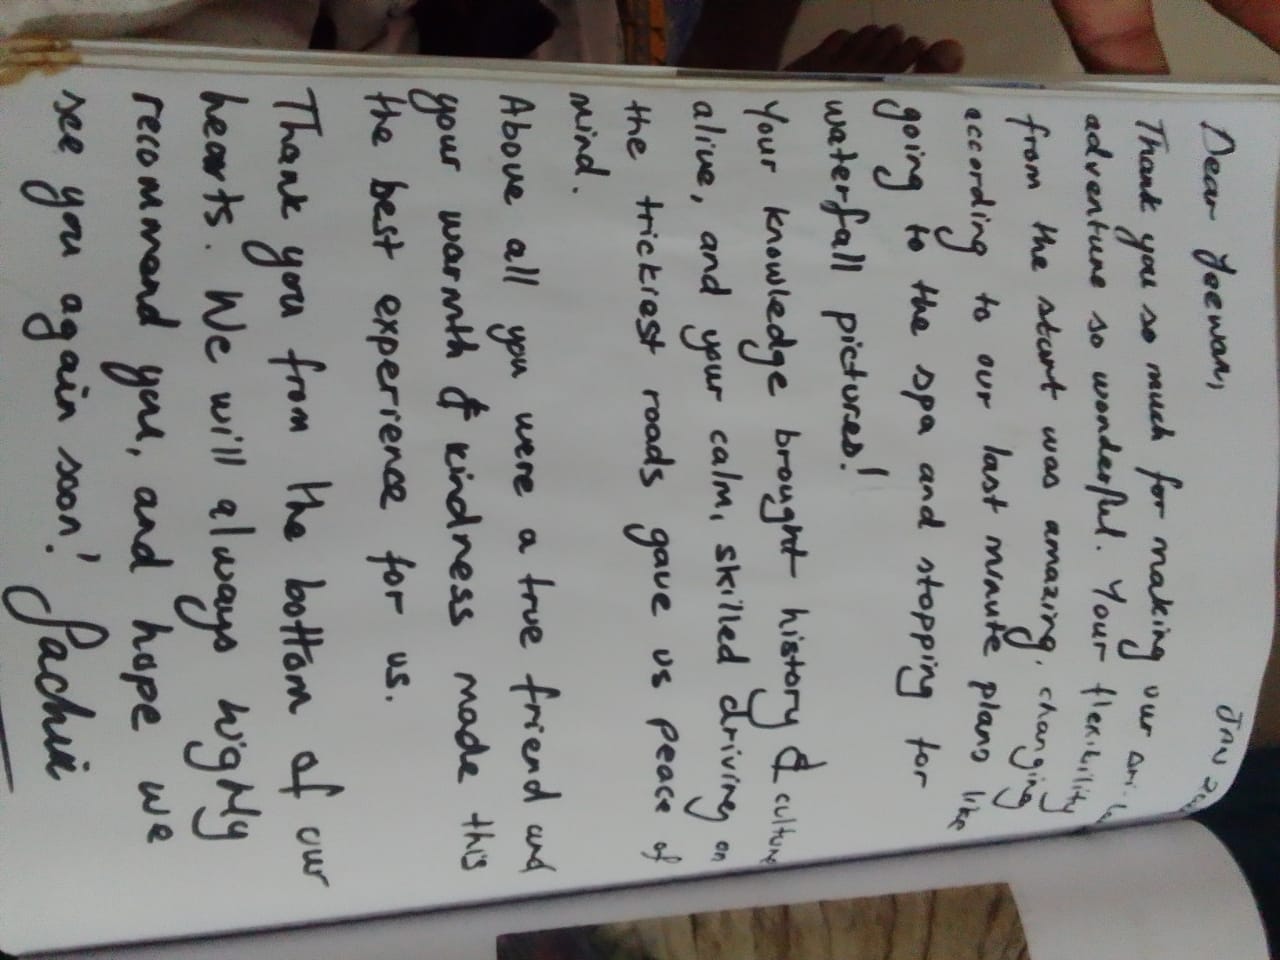 Jan
Dear Jeewan,
Thank you so much for making our
adventure so wonderful. Your flexibility
from the start was amazing. changing
according to our last minute plans like
going to the spa and stopping for
waterfall pictures!
Your knowledge brought history & culture
alive, and your calm, skilled driving on
the trickiest roads gave us peace of
mind.
Above all you were a true friend and
your warmth & kindness made this
the best experience for us.
Thank you from the bottom of our
hearts. We will always highly
recommand you, and hope we
see you again soon!